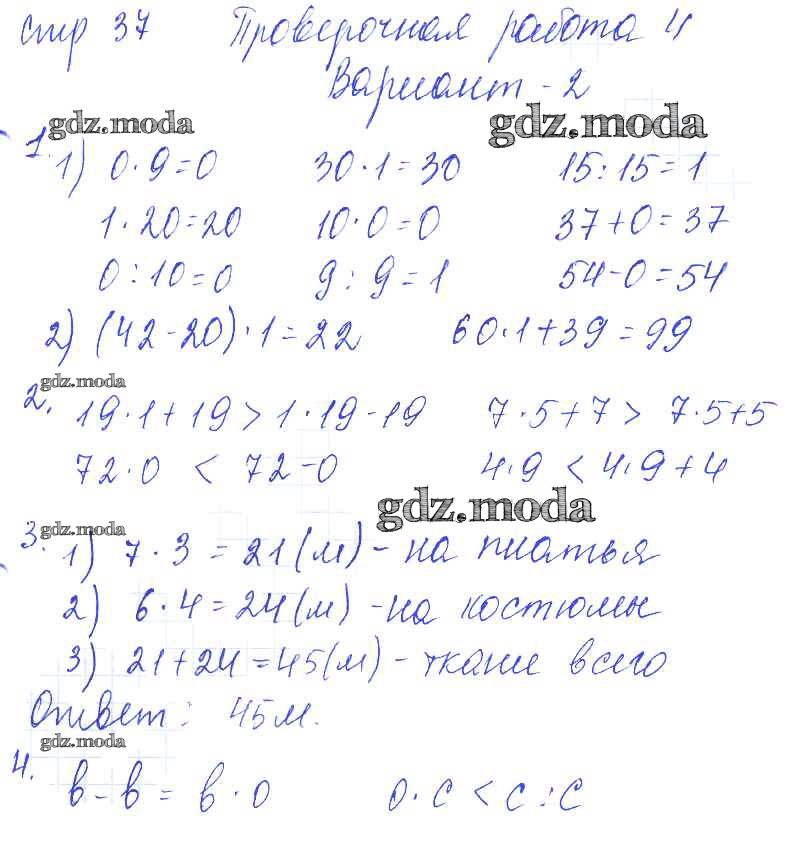 стр 37 Проверочная работа 4
Вариант - 2
gdz.moda gdz.moda
1. 1) 0·9=0 30·1=30 15:15=1
1·20=20 10·0=0 37+0=37
0:10=0 9:9=1 54-0=54
2) (42-20)·1=22 60·1+39=99
gdz.moda
2. 19·1+19>1·19-19 7·5+7> 7·5+5
72·0 < 72-0 4·9 < 4·9+4
gdz.moda
gdz.moda
3. 1) 7·3 = 21(м) - на платья
2) 6·4=24(м) - на костюмы
3) 21+24=45(м) - ткани всего
Ответ: 45м.
gdz.moda
4. в-в=в·0 0·с<с:с